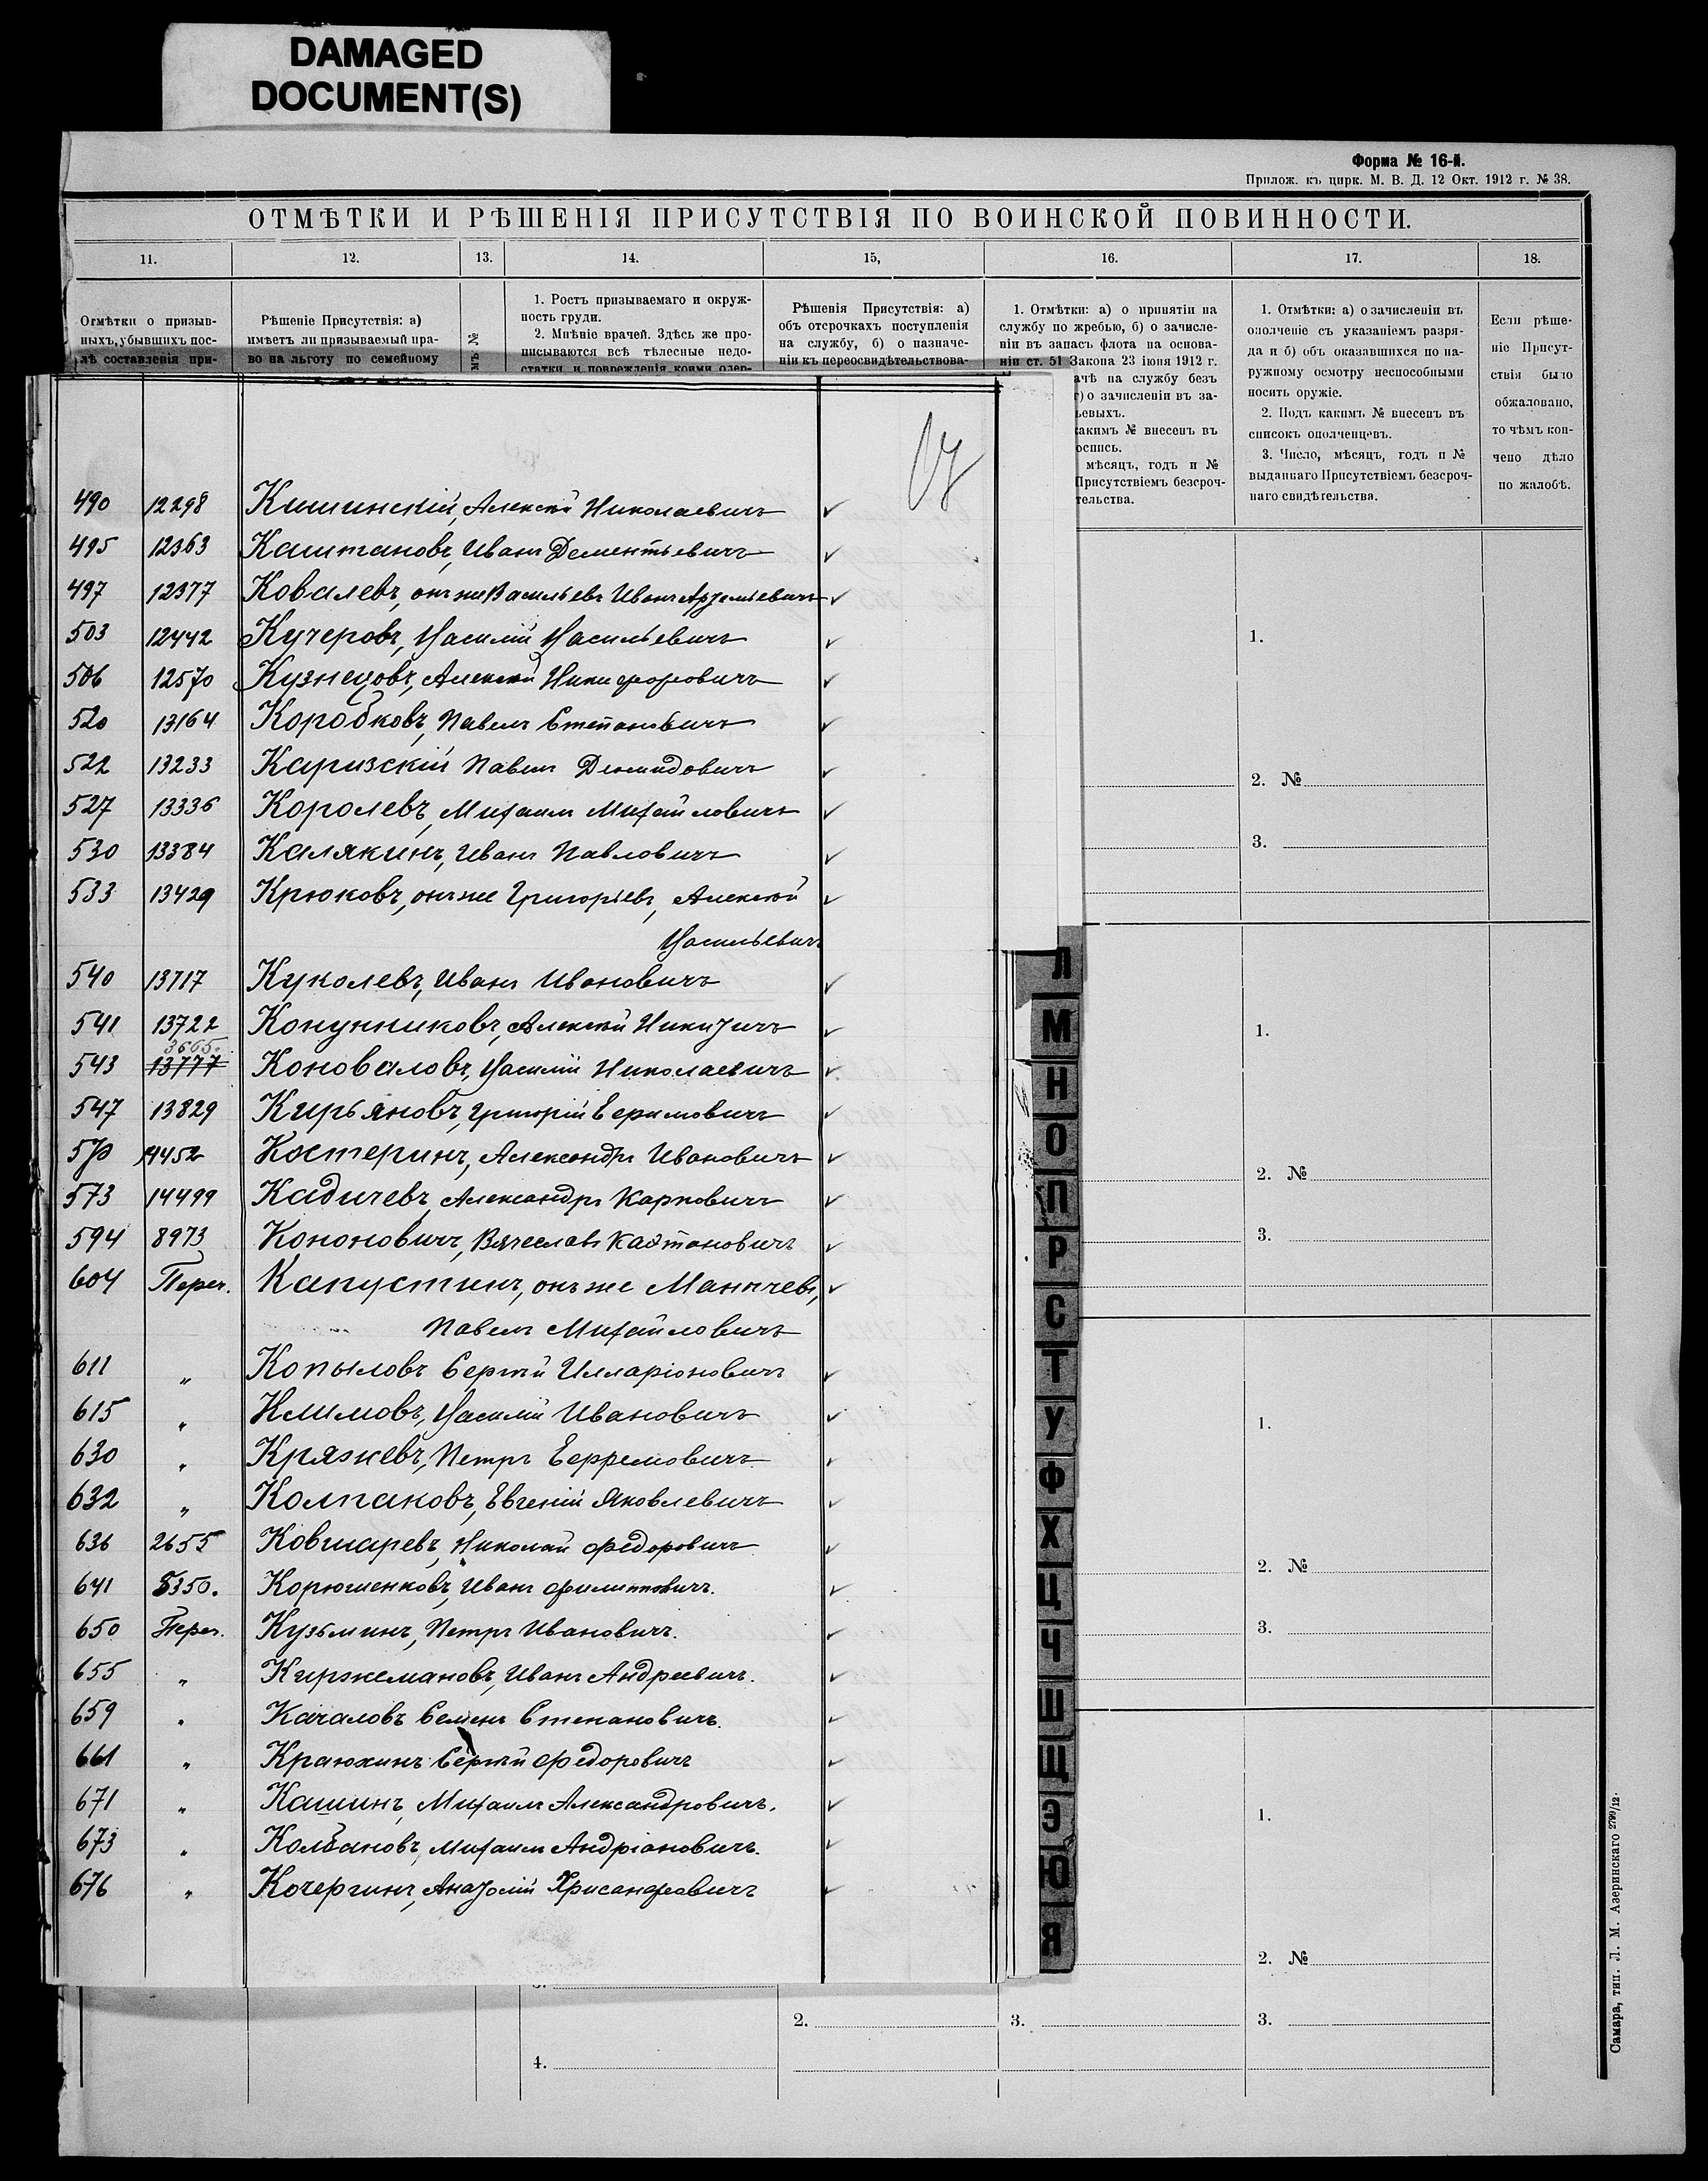 DAMAGED
DOCUMENT(S)
Форма № 16-й.
Прилож. къ цирк. М. В. Д. 12 Окт. 1912 г. № 38.
ОТМѢТКИ И РѢШЕНІЯ ПРИСУТСТВІЯ ПО ВОИНСКОЙ ПОВИННОСТИ.
11. 12. 13. 14. 15, 16. 17. 18.
Отмѣтки о призыв-
ныхъ, убывшихъ пос-
лѣ составленія при-
Рѣшеніе Присутствія: а)
имѣетъ ли призываемый пра-
во на льготу по семейному
мъ №
1. Ростъ призываемаго и окруж-
ность груди.
2. Мнѣніе врачей. Здѣсь же про-
писываются всѣ тѣлесные недо-
статки и поврежденія, коими одер-
Рѣшенія Присутствія: а)
объ отсрочкахъ поступленія
на службу, б) о назначе-
ніи къ переосвидѣтельствова-
1. Отмѣтки: а) о принятіи на
службу по жребью, б) о зачисле-
ніи въ запасъ флота на основа-
ніи ст. 51 Закона 23 іюня 1912 г.
ачѣ на службу безъ
г) о зачисленіи въ за-
ьевыхъ.
какимъ № внесенъ въ
оспись.
мѣсяцъ, годъ и №
Присутствіемъ безсроч-
тельства.
1. Отмѣтки: а) о зачисленіи въ
ополченіе съ указаніемъ разря-
да и б) объ оказавшихся по на-
ружному осмотру неспособными
носить оружіе.
2. Подъ какимъ № внесенъ въ
списокъ ополченцевъ.
3. Число, мѣсяцъ, годъ и №
выданнаго Присутствіемъ безсроч-
наго свидѣтельства.
Если рѣше-
ніе Присут-
ствія было
обжаловано,
то чѣмъ кон-
чено дѣло
по жалобѣ.
490 12298 Кишинскій, Алексѣй Николаевичъ
495 12363 Каштановъ, Иванъ Дементьевичъ
497 12377 Ковалевъ, онъ же Васильевъ Иванъ Артемьевичъ
503 12442 Кучеровъ, Василій Васильевичъ
506 12570 Кузнецовъ, Алексѣй Никифоровичъ
520 13164 Коробковъ, Павелъ Степановичъ
522 13233 Каризскій Павелъ Демидовичъ
527 13336 Королевъ, Михаилъ Михайловичъ
530 13384 Калякинъ, Иванъ Павловичъ
533 13429 Крюковъ, онъ же Григорьевъ, Алексѣй
Васильевичъ
540 13717 Куколевъ, Иванъ Ивановичъ
541 13722 Конунниковъ, Алексѣй Никитичъ
3665.
543 13777 Коноваловъ, Василій Николаевичъ
547 13829 Кирьяновъ, Григорій Ефимовичъ
570 14452 Костеринъ, Александръ Ивановичъ
573 14499 Кадичевъ, Александръ Карповичъ
594 8973 Кононовичъ, Вячеславъ Каэтановичъ
604 Переч. Капустинъ, онъ же
Павелъ Михайловичъ
611 " Копыловъ Сергѣй Илларіоновичъ
615 " Климовъ, Василій Ивановичъ
630 " Кряжевъ, Петръ Ефремовичъ
632 " Колпаковъ, Евгеній Яковлевичъ
636 2655 Ковшаревъ, Николай Федоровичъ
641 5350. Корюшенковъ, Иванъ Филипповичъ.
650 Переч. Кузьминъ, Петръ Ивановичъ.
655 " Киржемановъ, Иванъ Андреевичъ.
659 " Качаловъ Семенъ Степановичъ.
661 " Краюхинъ Сергѣй Федоровичъ
671 " Кашинъ, Михаилъ Александровичъ.
673 " Колбановъ, Михаилъ Андріановичъ.
676 " Кочергинъ, Анатолій Хрисанфовичъ
Л
М
Н
О
П
Р
С
Т
У
Ф
Х
Ц
Ч
Ш
Щ
Э
Ю
Я
1.
2. №
3.
1.
2. №
3.
1.
2. №
3.
1.
2. №
2. 3. 3.
4.
Самара, тип. Л. М. Азеринскаго 2799/12.